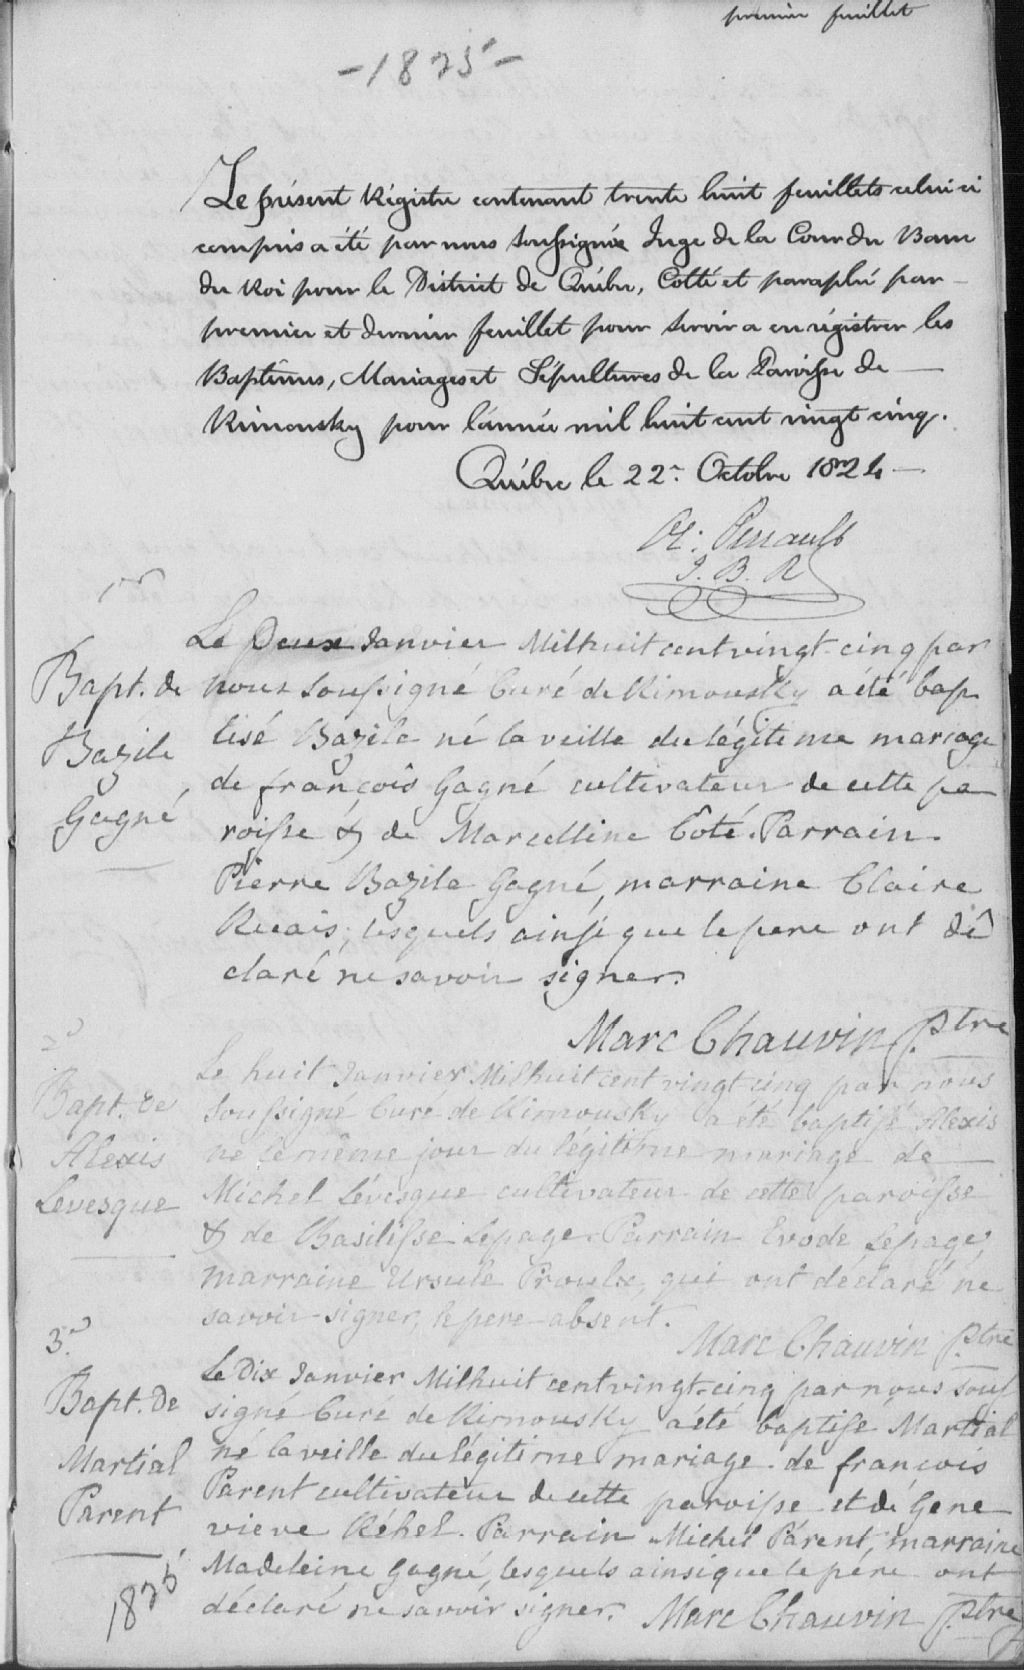 premier feuillet
- 1825 -
Le présent Régistre contenant trente huit feuillets celui ci
compris a été par nous Soussigné Juge de la Cour du Banc
du Roi pour le District de Québec, Cotté et paraphé par
premier et dernier feuillet pour servir a enrégistrer les
Baptêmes, Mariages et Sépultures de la Paroisse de
Rimousky pour l'année mil huit cent vingt cinq.
Québec le 22e Octobre 1824
Ol: Perrault
J. B. R
1er
Bapt. de
Bazile
Gagné
Le Deux Janvier Mil huit cent vingt-cinq par
nous soussigné Curé de Rimousky a été bap
tisé Bazile né la veille du légitime mariage
de françois Gagné cultivateur de cette pa
roisse & de Marcelline Côté. Parrain
Pierre Bazile Gagné, marraine Claire
Ruais, lesquels ainsi que le pere ont dé
claré ne savoir signer.
Marc Chauvin Ptre
2e
Bapt. de
Alexis
Levesque
Le huit Janvier Mil huit cent vingt cinq par nous
soussigné Curé de Rimousky a été baptisé Alexis
né le même jour du légitime mariage de
Michel Lévesque cultivateur de cette paroisse
& de Basilisse Lepage. Parrain Evode Lepage,
marraine Ursule Proulx, qui ont déclaré ne
savoir signer, le pere absent.
Marc Chauvin Ptre
3e
Bapt. de
Martial
Parent
Le Dix Janvier Mil huit cent vingt-cinq par nous sous
signé Curé de Rimousky a été baptisé Martial
né la veille du légitime mariage de françois
Parent cultivateur de cette paroisse et de Gene
vieve Réhel. Parrain Michel Parent, marraine
Madeleine Gagné, lesquels ainsi que le pére ont
déclaré ne savoir signer. Marc Chauvin Ptre
1825